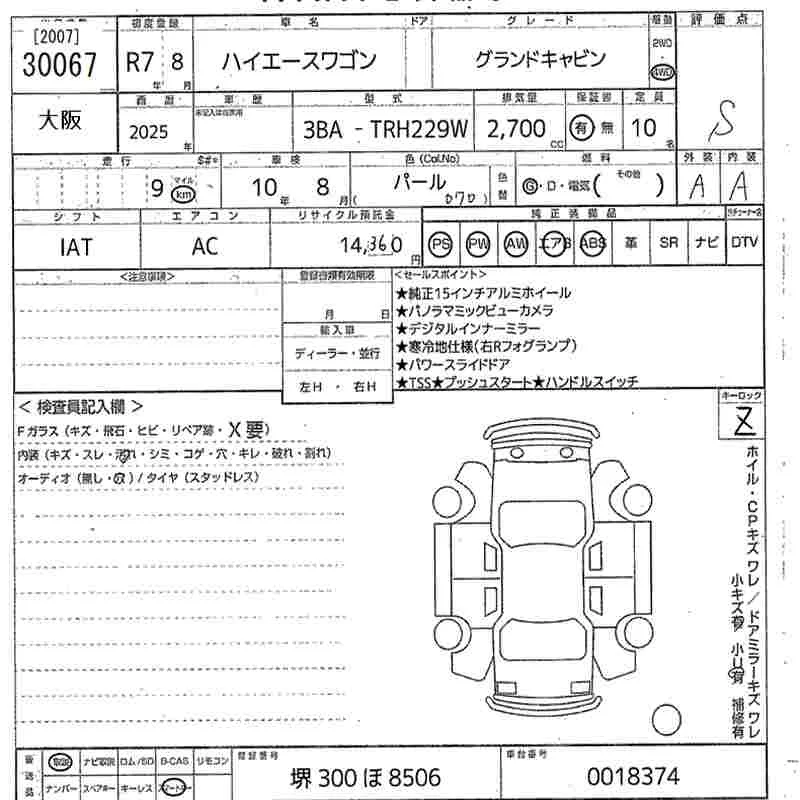 初度登録 車名 ドア グレード 駆動 評価点
[2007]
30067 R7年 8月 ハイエースワゴン グランドキャビン 2WD 4WD S
西暦 車歴 型式 排気量 保証書 定員
大阪 2025年 未記入は自家用 3BA - TRH229W 2,700CC 有 無 10名
走行 $#* 車検 色(Col.No) 燃料 外装 内装
9 マイル km 10年 8月 パール (070) 色替 G・D・電気( その他 ) A A
シフト エアコン リサイクル預託金 純正装備品
IAT AC 14,360円 PS PW AW エアB ABS 革 SR ナビ DTV
<注意事項> 登録書類有効期限 <セールスポイント>
月 日
★純正15インチアルミホイール
★パノラマミックビューカメラ
輸入車 ★デジタルインナーミラー
ディーラー・並行 ★寒冷地仕様(右Rフォグランプ)
★パワースライドドア
左H ・ 右H ★TSS★プッシュスタート★ハンドルスイッチ
キーロック
Z
< 検査員記入欄 >
Fガラス (キズ・飛石・ヒビ・リペア跡・X要)
内装 (キズ・スレ・汚れ・シミ・コゲ・穴・キレ・破れ・割れ)
オーディオ (無し・穴) / タイヤ (スタッドレス)
ホイル・CPキズ ワレ / ドアミラーキズ ワレ
小キズ有 小U有 補修有
後送品 取説 ナビ取説 ロム/SD B-CAS リモコン 登録番号 車台番号
ナンバー スペアキー キーレス スマートキー 堺 300 ほ 8506 0018374